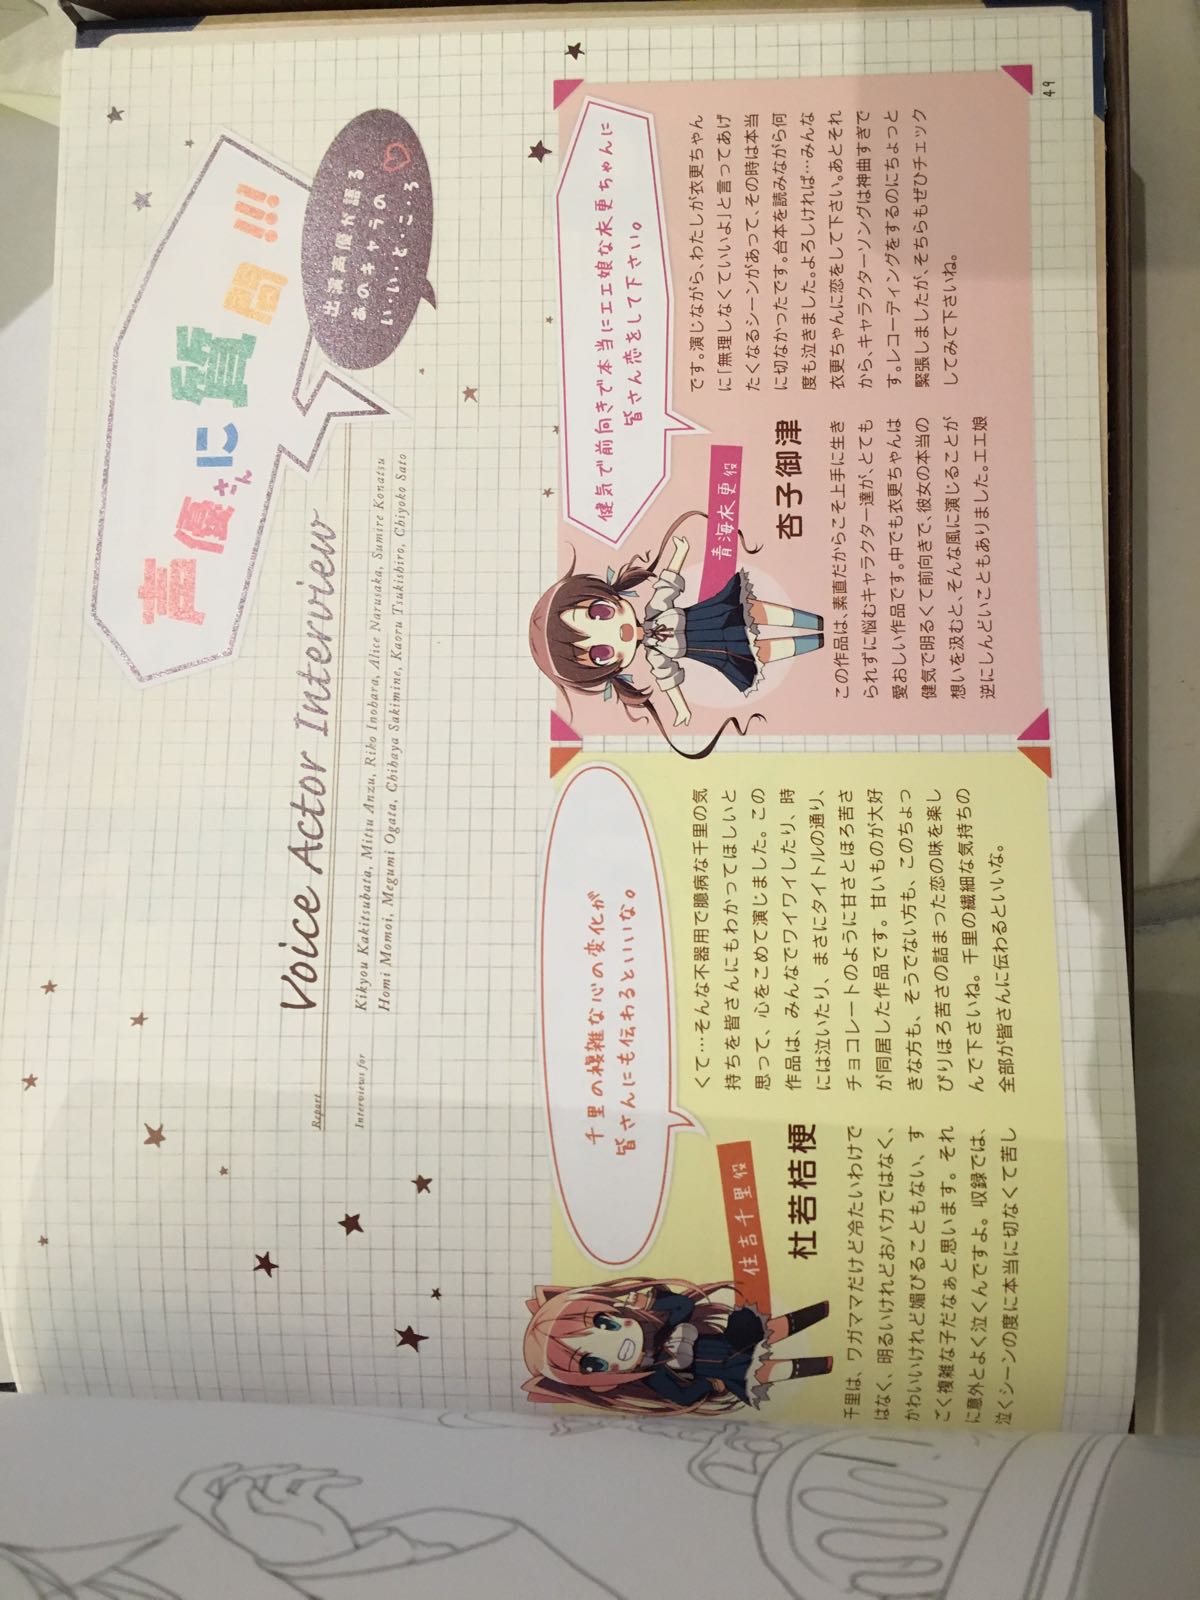 声優さんに質問!!!
出演声優が語る
あのキャラの
い・い・と・こ・ろ
Voice Actor Interview
Report
Interviews for
Kikyou Kakitsubata, Mitsu Anzu, Riko Inohara, Alice Narusaka, Sumire Konatsu
Homi Momoi, Megumi Ogata, Chihaya Sakimine, Kaoru Tsukishiro, Chiyoko Sato
千里の複雑な心の変化が
皆さんにも伝わるといいな。
住吉千里役
杜若桔梗
千里は、ワガママだけど冷たいわけで
はなく、明るいけれどおバカではなく、
かわいいけれど媚びることもない、す
ごく複雑な子だなぁと思います。それ
に意外とよく泣くんですよ。収録では、
泣くシーンの度に本当に切なくて苦し
くて…そんな不器用で臆病な千里の気
持ちを皆さんにもわかってほしいと
思って、心をこめて演じました。この
作品は、みんなでワイワイしたり、時
には泣いたり、まさにタイトルの通り、
チョコレートのように甘さとほろ苦さ
が同居した作品です。甘いものが大好
きな方も、そうでない方も、このちょっ
ぴりほろ苦さの詰まった恋の味を楽し
んで下さいね。千里の繊細な気持ちの
全部が皆さんに伝わるといいな。
健気で前向きで本当にエエ娘な衣更ちゃんに
皆さん恋をして下さい。
青海衣更役
杏子御津
この作品は、素直だからこそ上手に生き
られずに悩むキャラクター達が、とても
愛おしい作品です。中でも衣更ちゃんは
健気で明るくて前向きで、彼女の本当の
想いを汲むと、そんな風に演じることが
逆にしんどいこともありました。エエ娘
です。演じながら、わたしが衣更ちゃん
に「無理しなくていいよ」と言ってあげ
たくなるシーンがあって、その時は本当
に切なかったです。台本を読みながら何
度も泣きました。よろしければ…みんな
衣更ちゃんに恋をして下さい。あとそれ
から、キャラクターソングは神曲すぎで
す。レコーディングをするのにちょっと
緊張しましたが、そちらもぜひチェック
してみて下さいね。
49